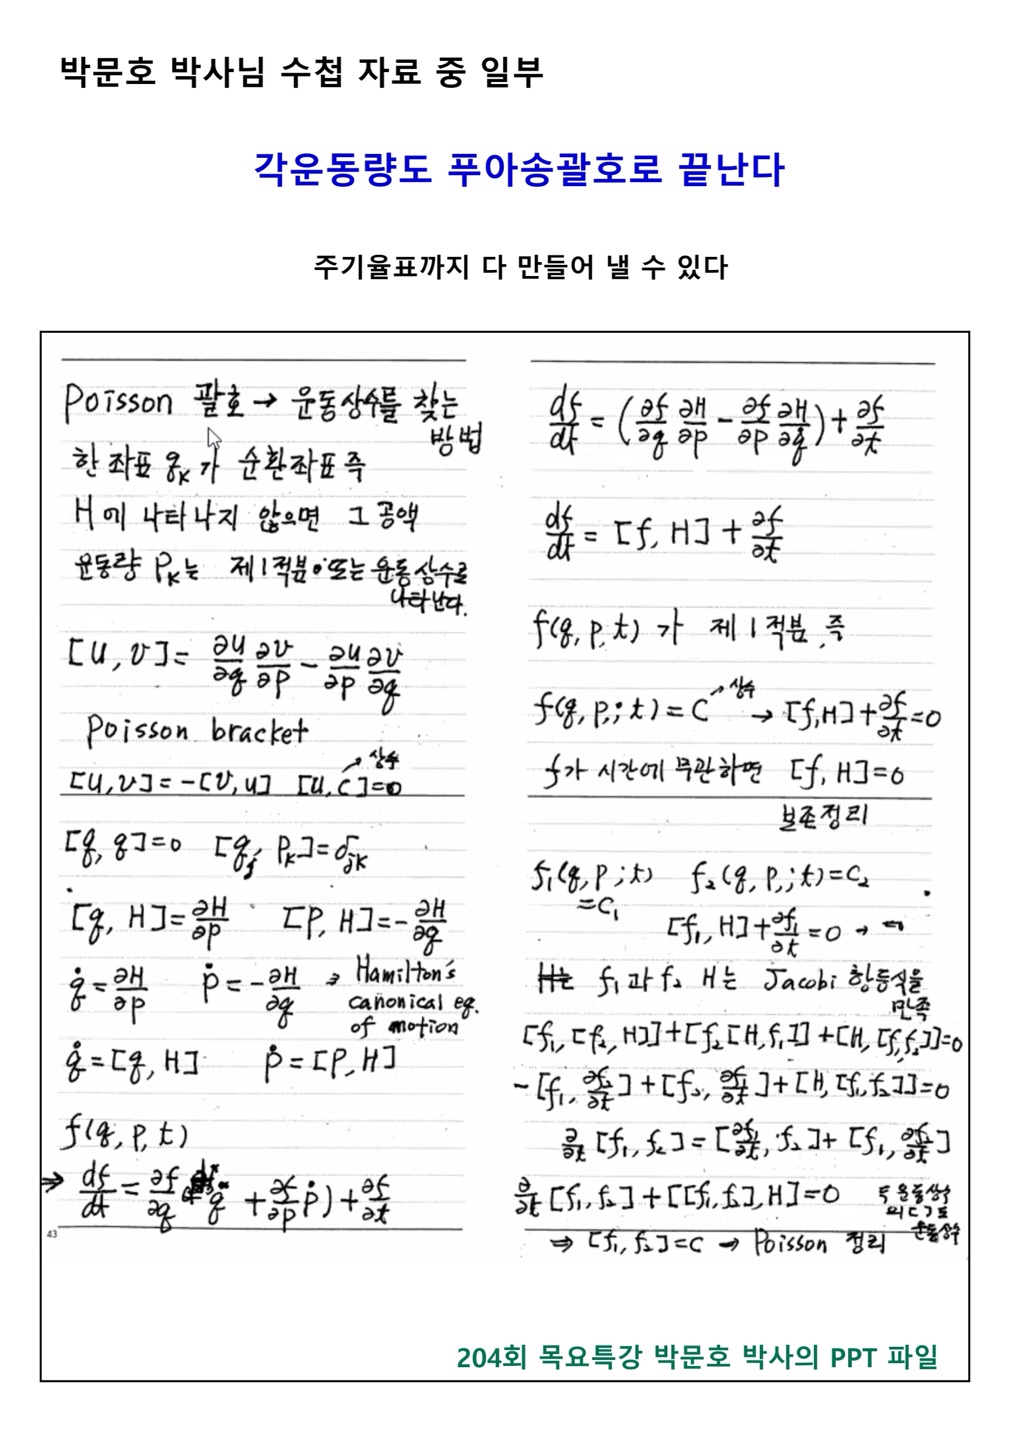 박문호 박사님 수첩 자료 중 일부
각운동량도 푸아송괄호로 끝난다
주기율표까지 다 만들어 낼 수 있다
Poisson 괄호 → 운동상수를 찾는
방법
한 좌표 qₖ가 순환좌표 즉
H에 나타나지 않으면 그 공액
운동량 Pₖ는 제1적분이 또는 운동상수로
나타난다.
[u, v] = ∂u/∂q ∂v/∂p - ∂u/∂p ∂v/∂q
Poisson bracket
↗ 상수
[u,v] = -[v,u] [u,c]=0
[q, q]=0 [qⱼ, Pₖ]=δⱼₖ
[q, H]=∂H/∂p [P, H]=-∂H/∂q
q̇=∂H/∂p ṗ=-∂H/∂q → Hamilton's
canonical eq.
of motion
q̇=[q,H] ṗ=[P,H]
f(q, p, t)
⇒ df/dt = ∂f/∂q q̇ + ∂f/∂p ṗ) + ∂f/∂t
43
df/dt = (∂f/∂q ∂H/∂p - ∂f/∂p ∂H/∂q) + ∂f/∂t
df/dt = [f, H] + ∂f/∂t
f(q, p, t) 가 제1적분, 즉
f(q, p,; t) = C ↗ 상수 → [f,H]+∂f/∂t=0
f가 시간에 무관하면 [f, H]=0
보존정리
f₁(q, p ; t) f₂(q, p,; t)=C₂
=C₁
[f₁, H]+∂f₁/∂t=0 →
H는 f₁과 f₂ H는 Jacobi 항등식을
만족
[f₁, [f₂, H]]+[f₂[H,f₁]]+[H, [f₁,f₂]]=0
-[f₁, ∂f₂/∂t]+[f₂, ∂f₁/∂t]+[H, [f₁,f₂]]=0
∂/∂t [f₁, f₂] = [∂f₁/∂t, f₂]+ [f₁, ∂f₂/∂t]
∂/∂t [f₁, f₂] + [[f₁,f₂],H]=0 두 운동상수
의 [ ]도
운동상수
⇒ [f₁, f₂]=C → Poisson 정리
204회 목요특강 박문호 박사의 PPT 파일